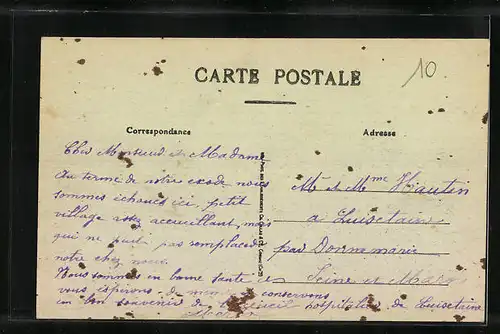 CARTE POSTALE
10
Correspondance
Adresse
Cher Monsieur et Madame
Au terme de notre exode nous
sommes échoués ici, petit
village assez accueillant, mais
qui ne peut pas remplacer
notre chez nous.
Nous sommes en bonne santé et
vous espérons de même conservons
un bon souvenir de hospitalier de Luisetaine
Mr et Mme Hautin
a Luisetaine
par Donnemarie
Seine et Marne